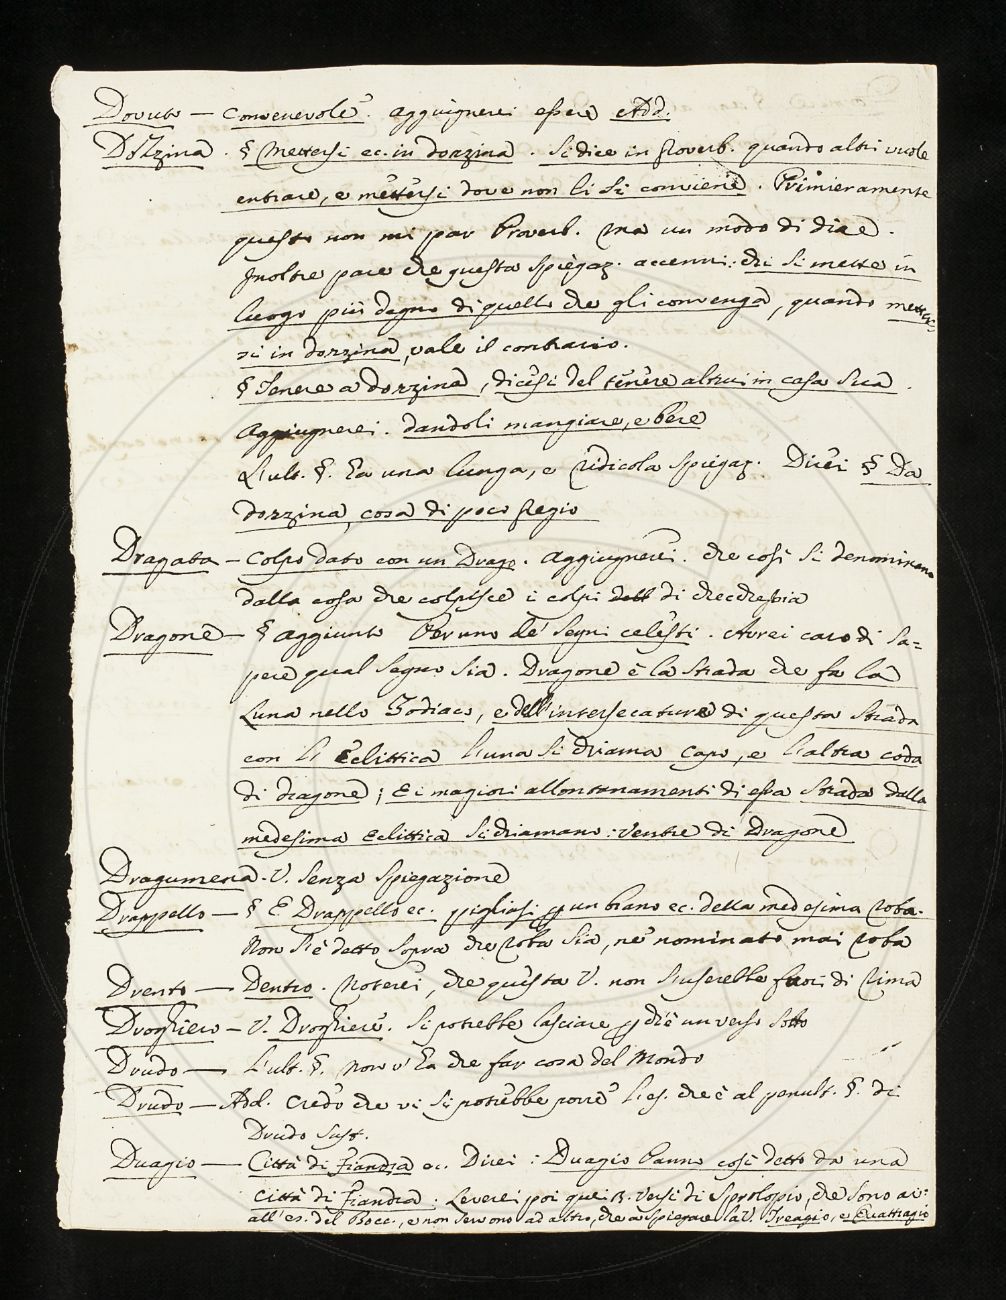 Dovuto — Convenevole. aggiugnerei essere Add.
Dozzina . § Mettersi ec. in dozzina . Si dice in Proverb. quando altri vuole
entrare, e mettersi dove non li si conviene . Primieramente
questo non mi par Proverb. ma un modo di dire .
Inoltre pare che questa spiegaz. accenni : chi si mette in
luogo più degno di quello che gli convenga, quando metter=
si in dozzina, vale il contrario.
§ Tenere a dozzina, dicesi del tenere altrui in casa sua .
Aggiugnerei . dandoli mangiare, e bere
L'ult. §. ha una lunga, e ridicola spiegaz. Direi § Da
dozzina, cosa di poco pregio
Dragata — Colpo dato con un Drago. aggiugnerei . che così si denominano
dalla cosa che colpisce i colpi di checchessia
Dragone — § aggiunto Per uno de' segni celesti . Avrei caro di sa=
pere qual segno sia . Dragone è la strada che fa la
Luna nello Zodiaco, e dell'intersecature di questa strada
con l'Eclittica l'una si chiama capo, e l'altra coda
di dragone ; E i magiori allontanamenti di essa strada dalla
medesima Eclittica si chiamano : ventre di Dragone
Dragumena . V. senza spiegazione
Drappello — § E Drappello ec. pigliasi p un brano ec. della medesima roba.
Non s'è detto sopra che roba sia, ne' nominato mai roba
Drento — Dentro . Noterei, che questa V. non s'userebbe fuori di rima
Droghiero — V. Droghiere . Si potrebbe lasciare p ch'è un verso sotto
Drudo — L'ult. §. non v'ha che far cosa del Mondo
Drudo — Add. Credo che vi si potrebbe porre l'es. che è al penult. §. di
Drudo Sust.
Duagio — Città di Fiandra ec. Direi : Duagio Panno così detto da una
città di Fiandra . Leverei poi quei versi di sproloquio, che sono ivi
all'es. del Bocc., e non servono ad altro, che a spiegare la V. Treagio, e Quattragio